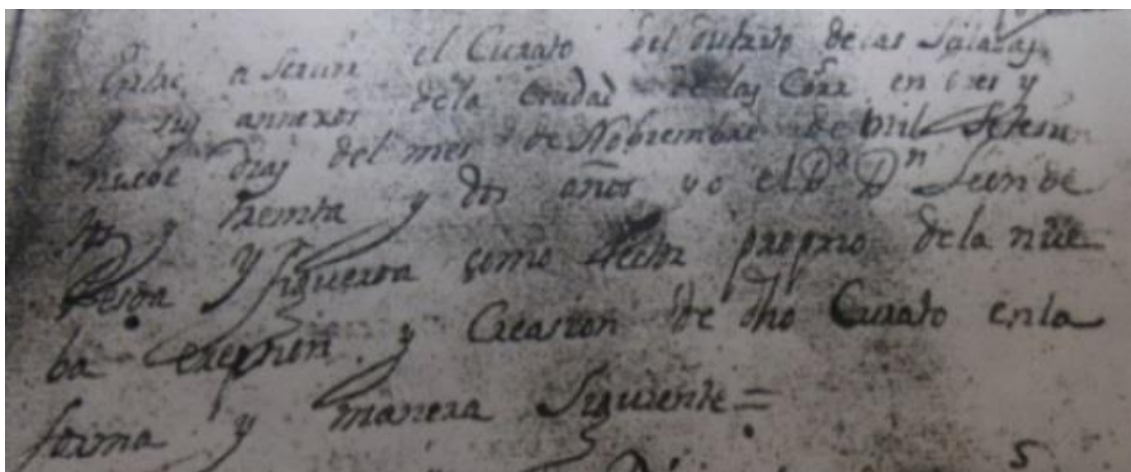 Entré a servir el Curato del distrito de las Saladas
y sus annexos de la Ciudad de las Corr.s en tres y
nuebe Dias del mes de Nobiembre de mil Setesien
tos y treinta y dos años yo el D.r D.n Leon de
Pesoa y figueroa como Rector proprio de la nue
ba erepsion y Creasion de dho Curato en la
forma y manera Siguiente =